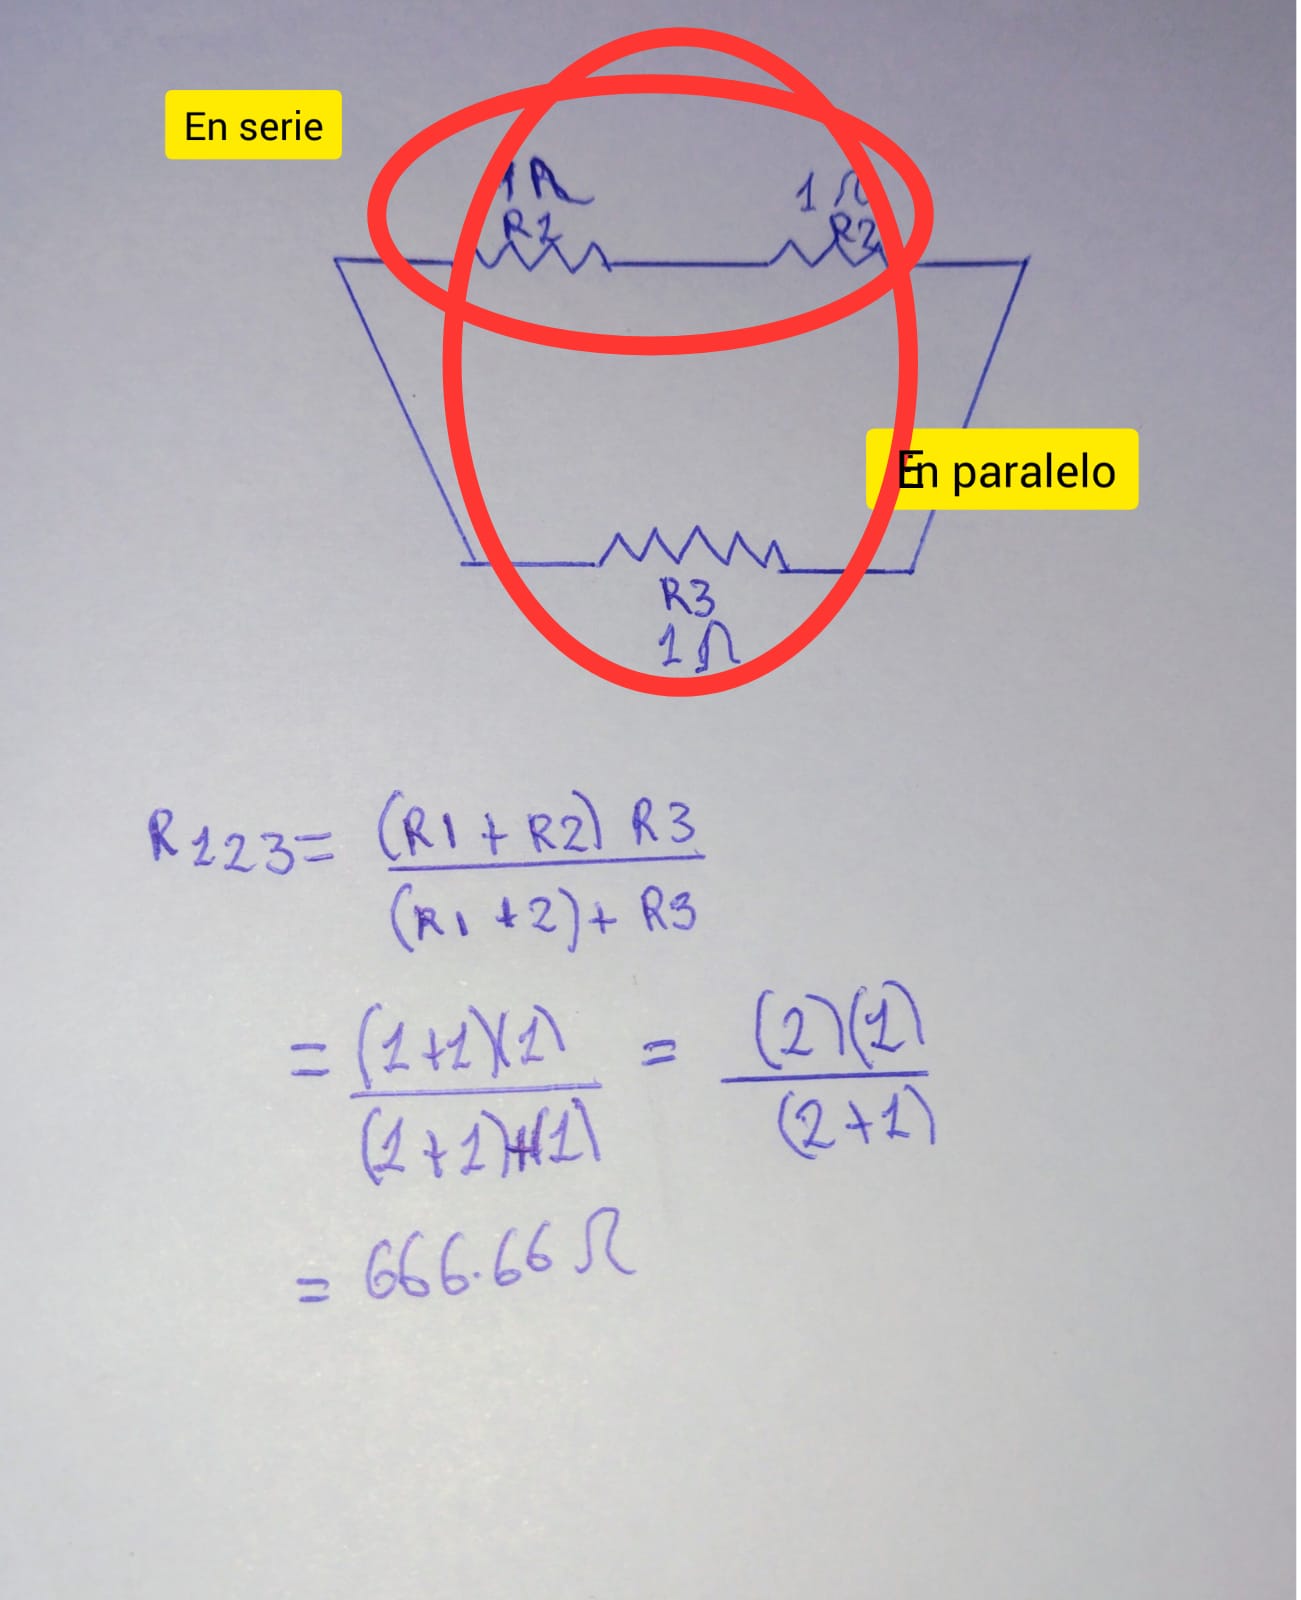 En serie
1 Ω 1 Ω
R1 R2
En paralelo
R3
1 Ω
R123= (R1 + R2) R3
(R1 + 2) + R3
= (1+1)(1) = (2)(1)
(1+1)+(1) (2+1)
= 666.66 Ω